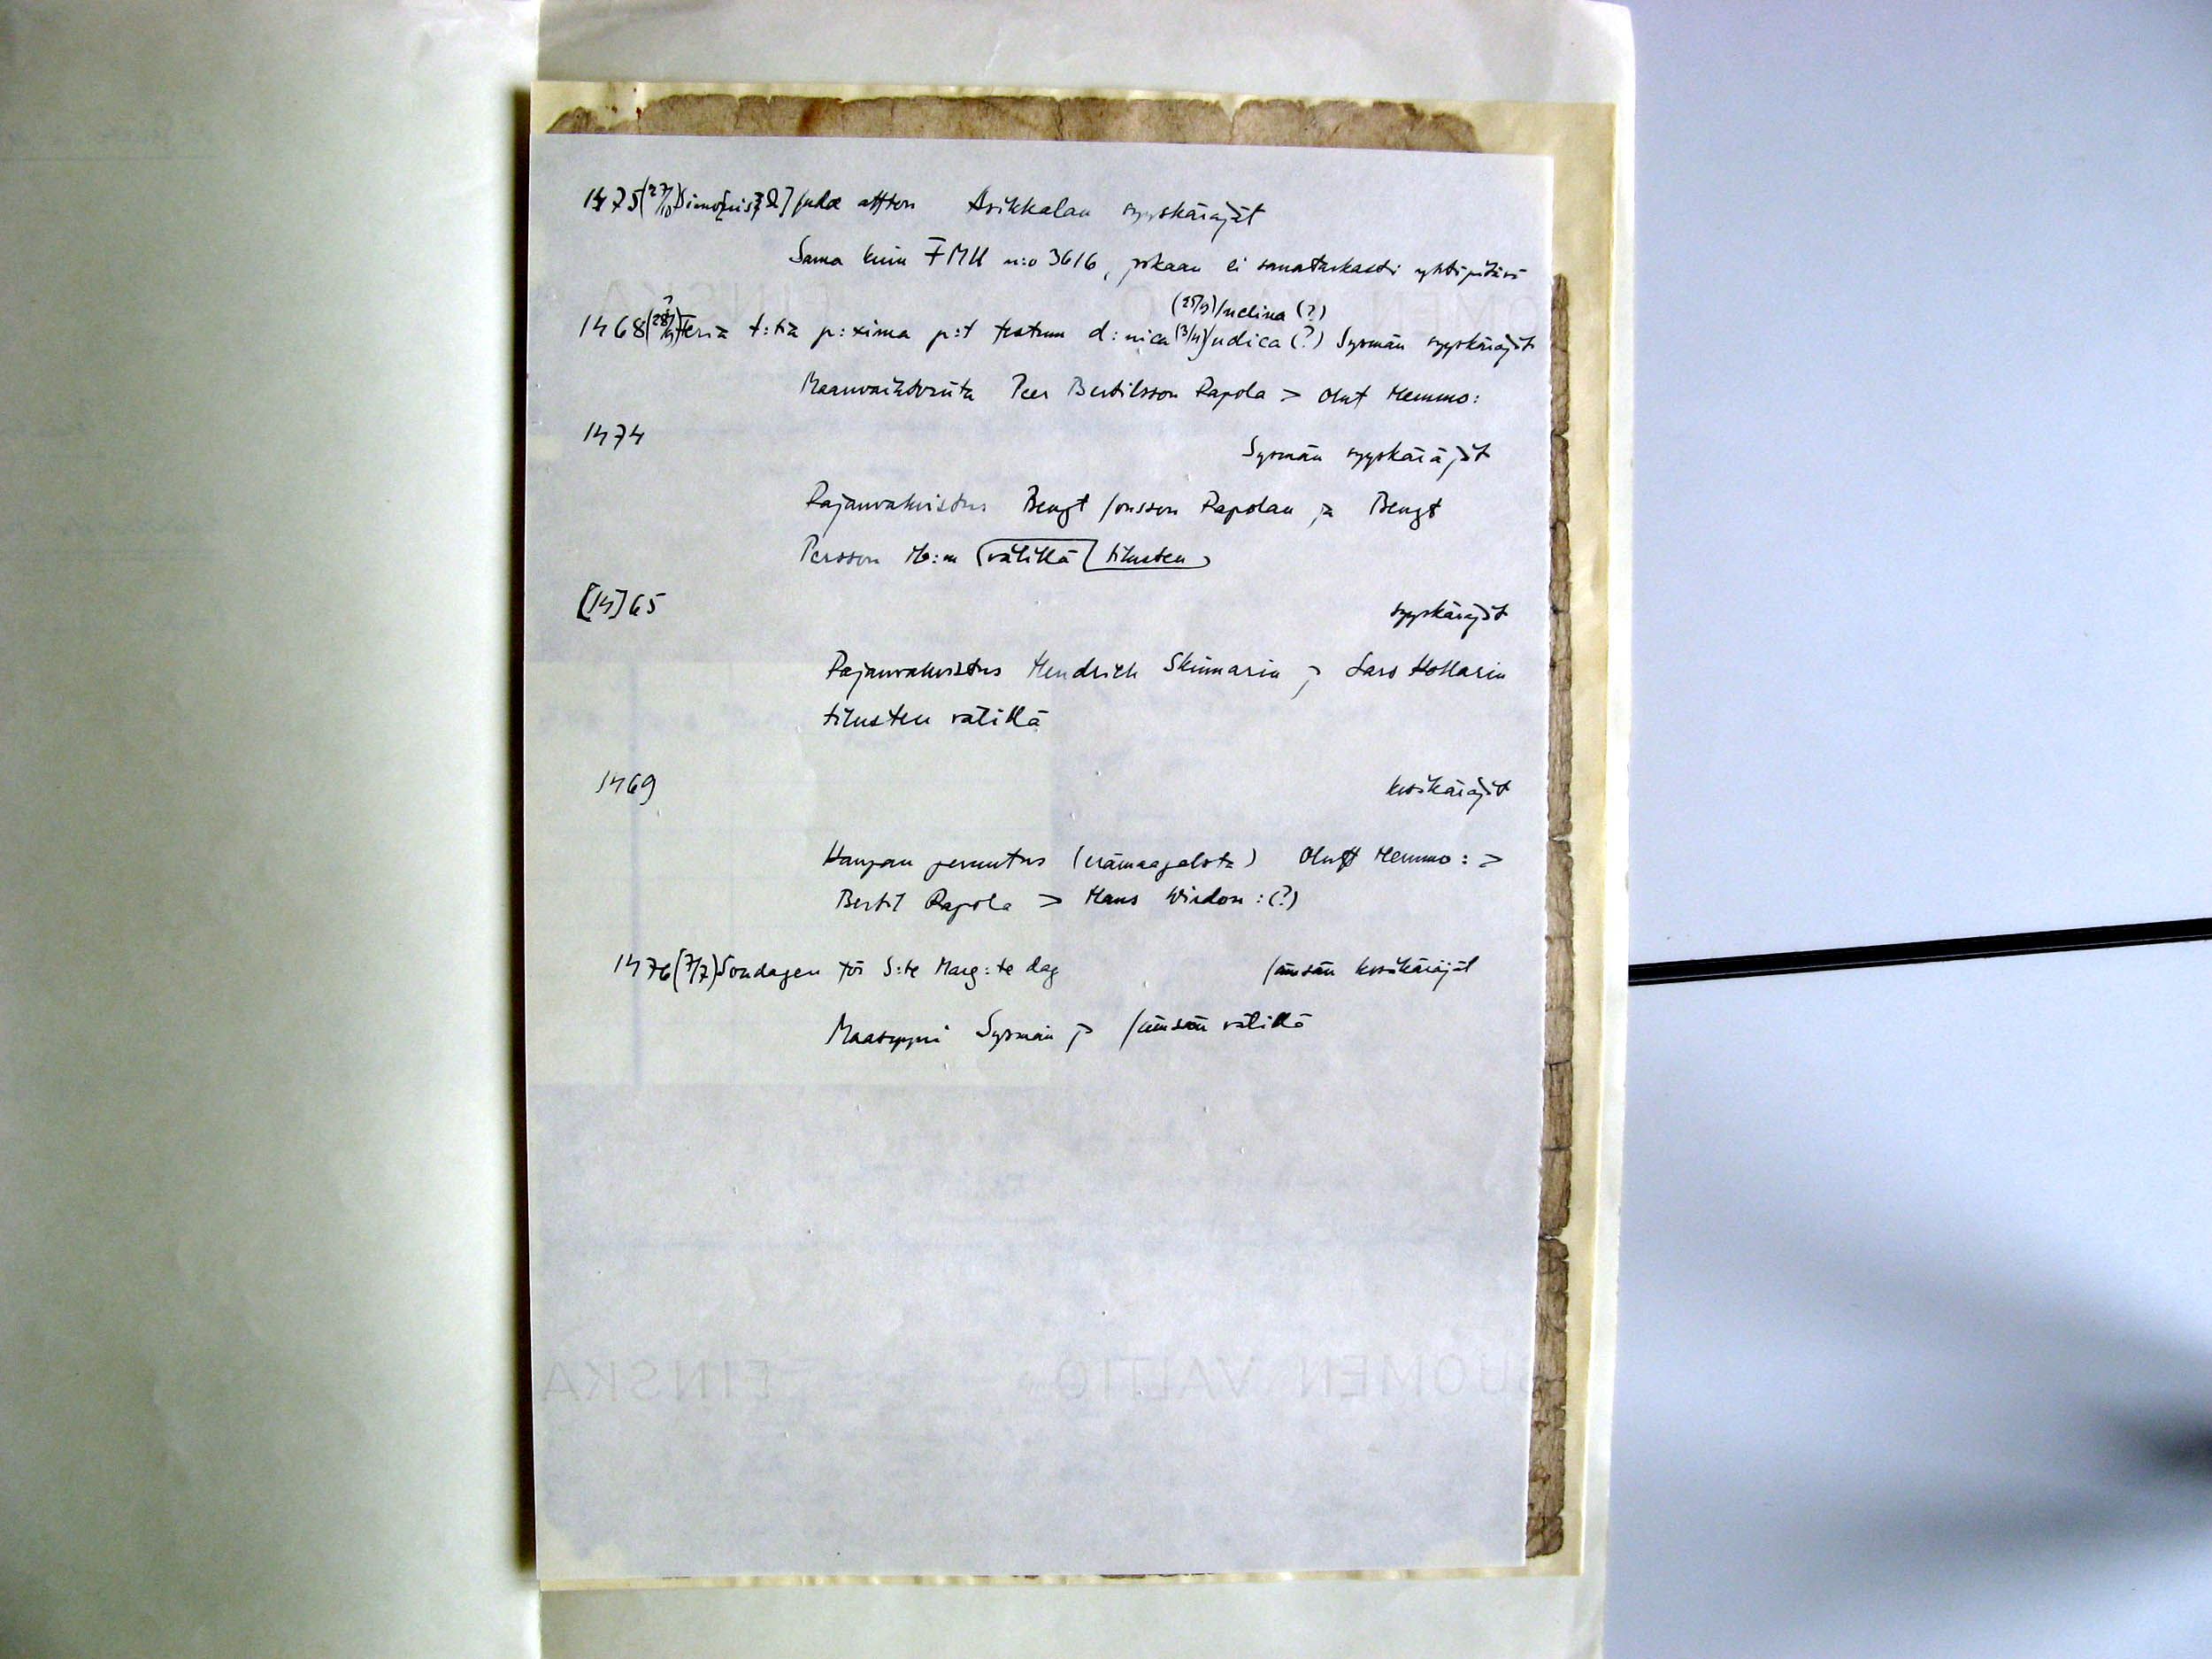 1475 (27/10) Simo[nis &] Jude afton Asikkalan syyskäräjät
Sama kuin FMU n:o 3616, jokaan ei sanatarkasti yhtäpitävä
(25/9) Judina (?)
1468 (28/9) Feria t:tia p:xima p:t festum d:nica (3/4) Judica (?) Sysmän syyskäräjät
Maanvaihtoriita Peer Bertilsson Rapola > Oluf Memmo:
1474
Sysmän syyskäräjät
Rajanvahvistus Bengt Jonsson Rapolan ja Bengt
Persson M:m välillä tilusten
[14]65 syyskäräjät
Rajanvahvistus Hendrich Skinnarin ja Lars Hollarin
tilusten välillä
1469 kesäkäräjät
Kaupan peruutus (erämaapalsta) Oluff Memmo: >
Bertil Rapola > Hans Windon: (?)
1476 (7/7) Söndagen för S:te Marg:te dag Jämsän kesäkäräjät
Maasyyni Sysmän ja Jämsän välillä
SUOMEN VALTIO FINSKA